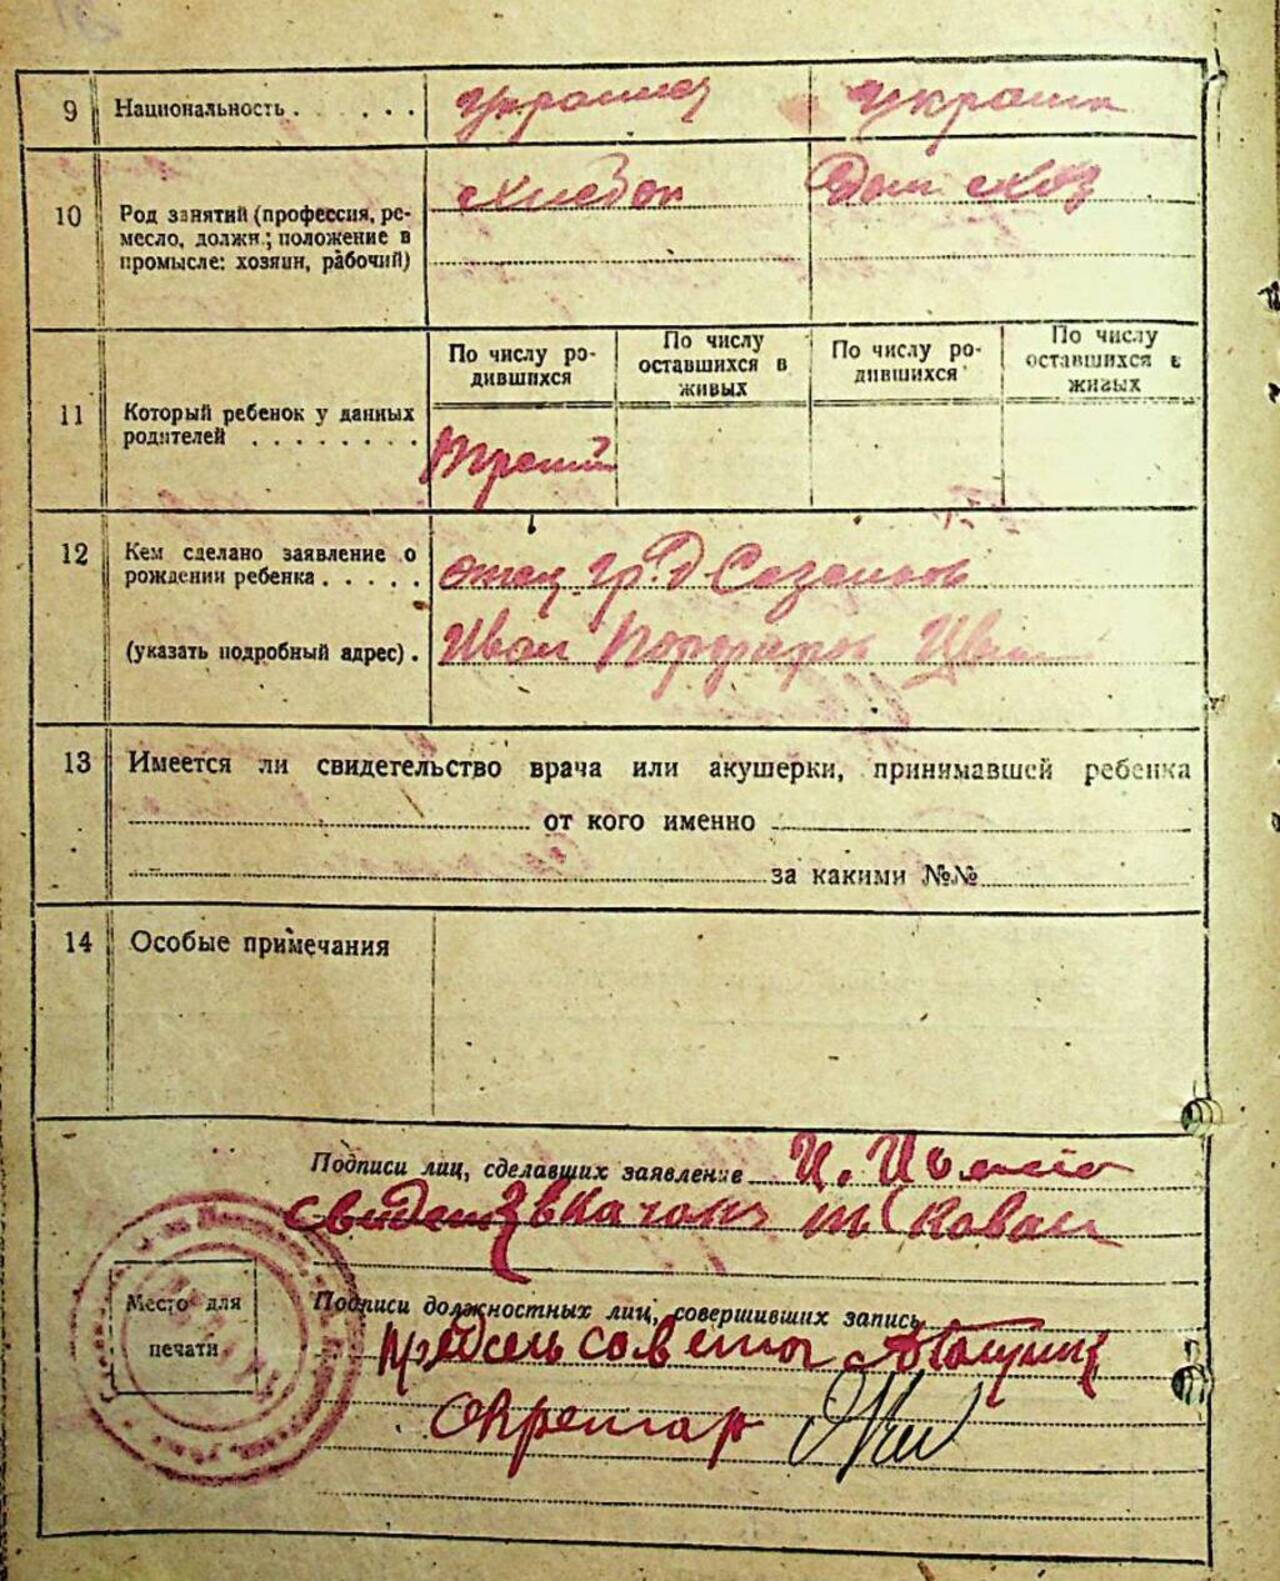 9 Национальность . . . . . украинец украин
10 Род занятий (профессия, ре-
месло, должн.; положение в
промысле: хозяин, рабочий)
хлебор Дом хоз
11 Который ребенок у данных
родителей . . . . . . . .
По числу ро-
дившихся
По числу
оставшихся в
живых
По числу ро-
дившихся
По числу
оставшихся в
живых
Третий
12 Кем сделано заявление о
рождении ребенка . . . . .
(указать подробный адрес) .
отец гр. Д
Иван
13 Имеется ли свидетельство врача или акушерки, принимавшей ребенка
от кого именно
за какими №№
14 Особые примечания
Подписи лиц, сделавших заявление И.
Подписи должностных лиц, совершивших запись
совета
Секретар
Место для
печати